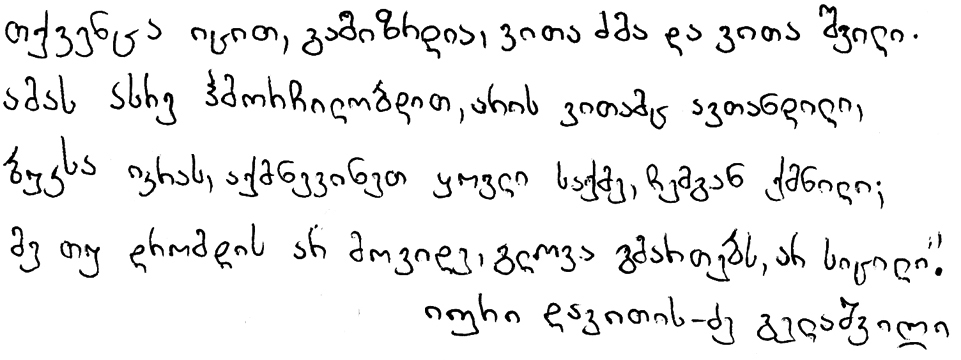 თქვენცა იცით, გამიზრდია, ვითა ძმა და ვითა შვილი.
ამას ასრე ჰმორჩილობდით, არის ვითამც ავთანდილი,
ბუკსა იკრას, აქმნევინეთ ყოვლი საქმე, ჩემგან ქმნილი;
მე თუ დრომდის არ მოვიდე, გლოვა გმართებს, არ სიცილი!"
იური დავითის-ძე გელაშვილი